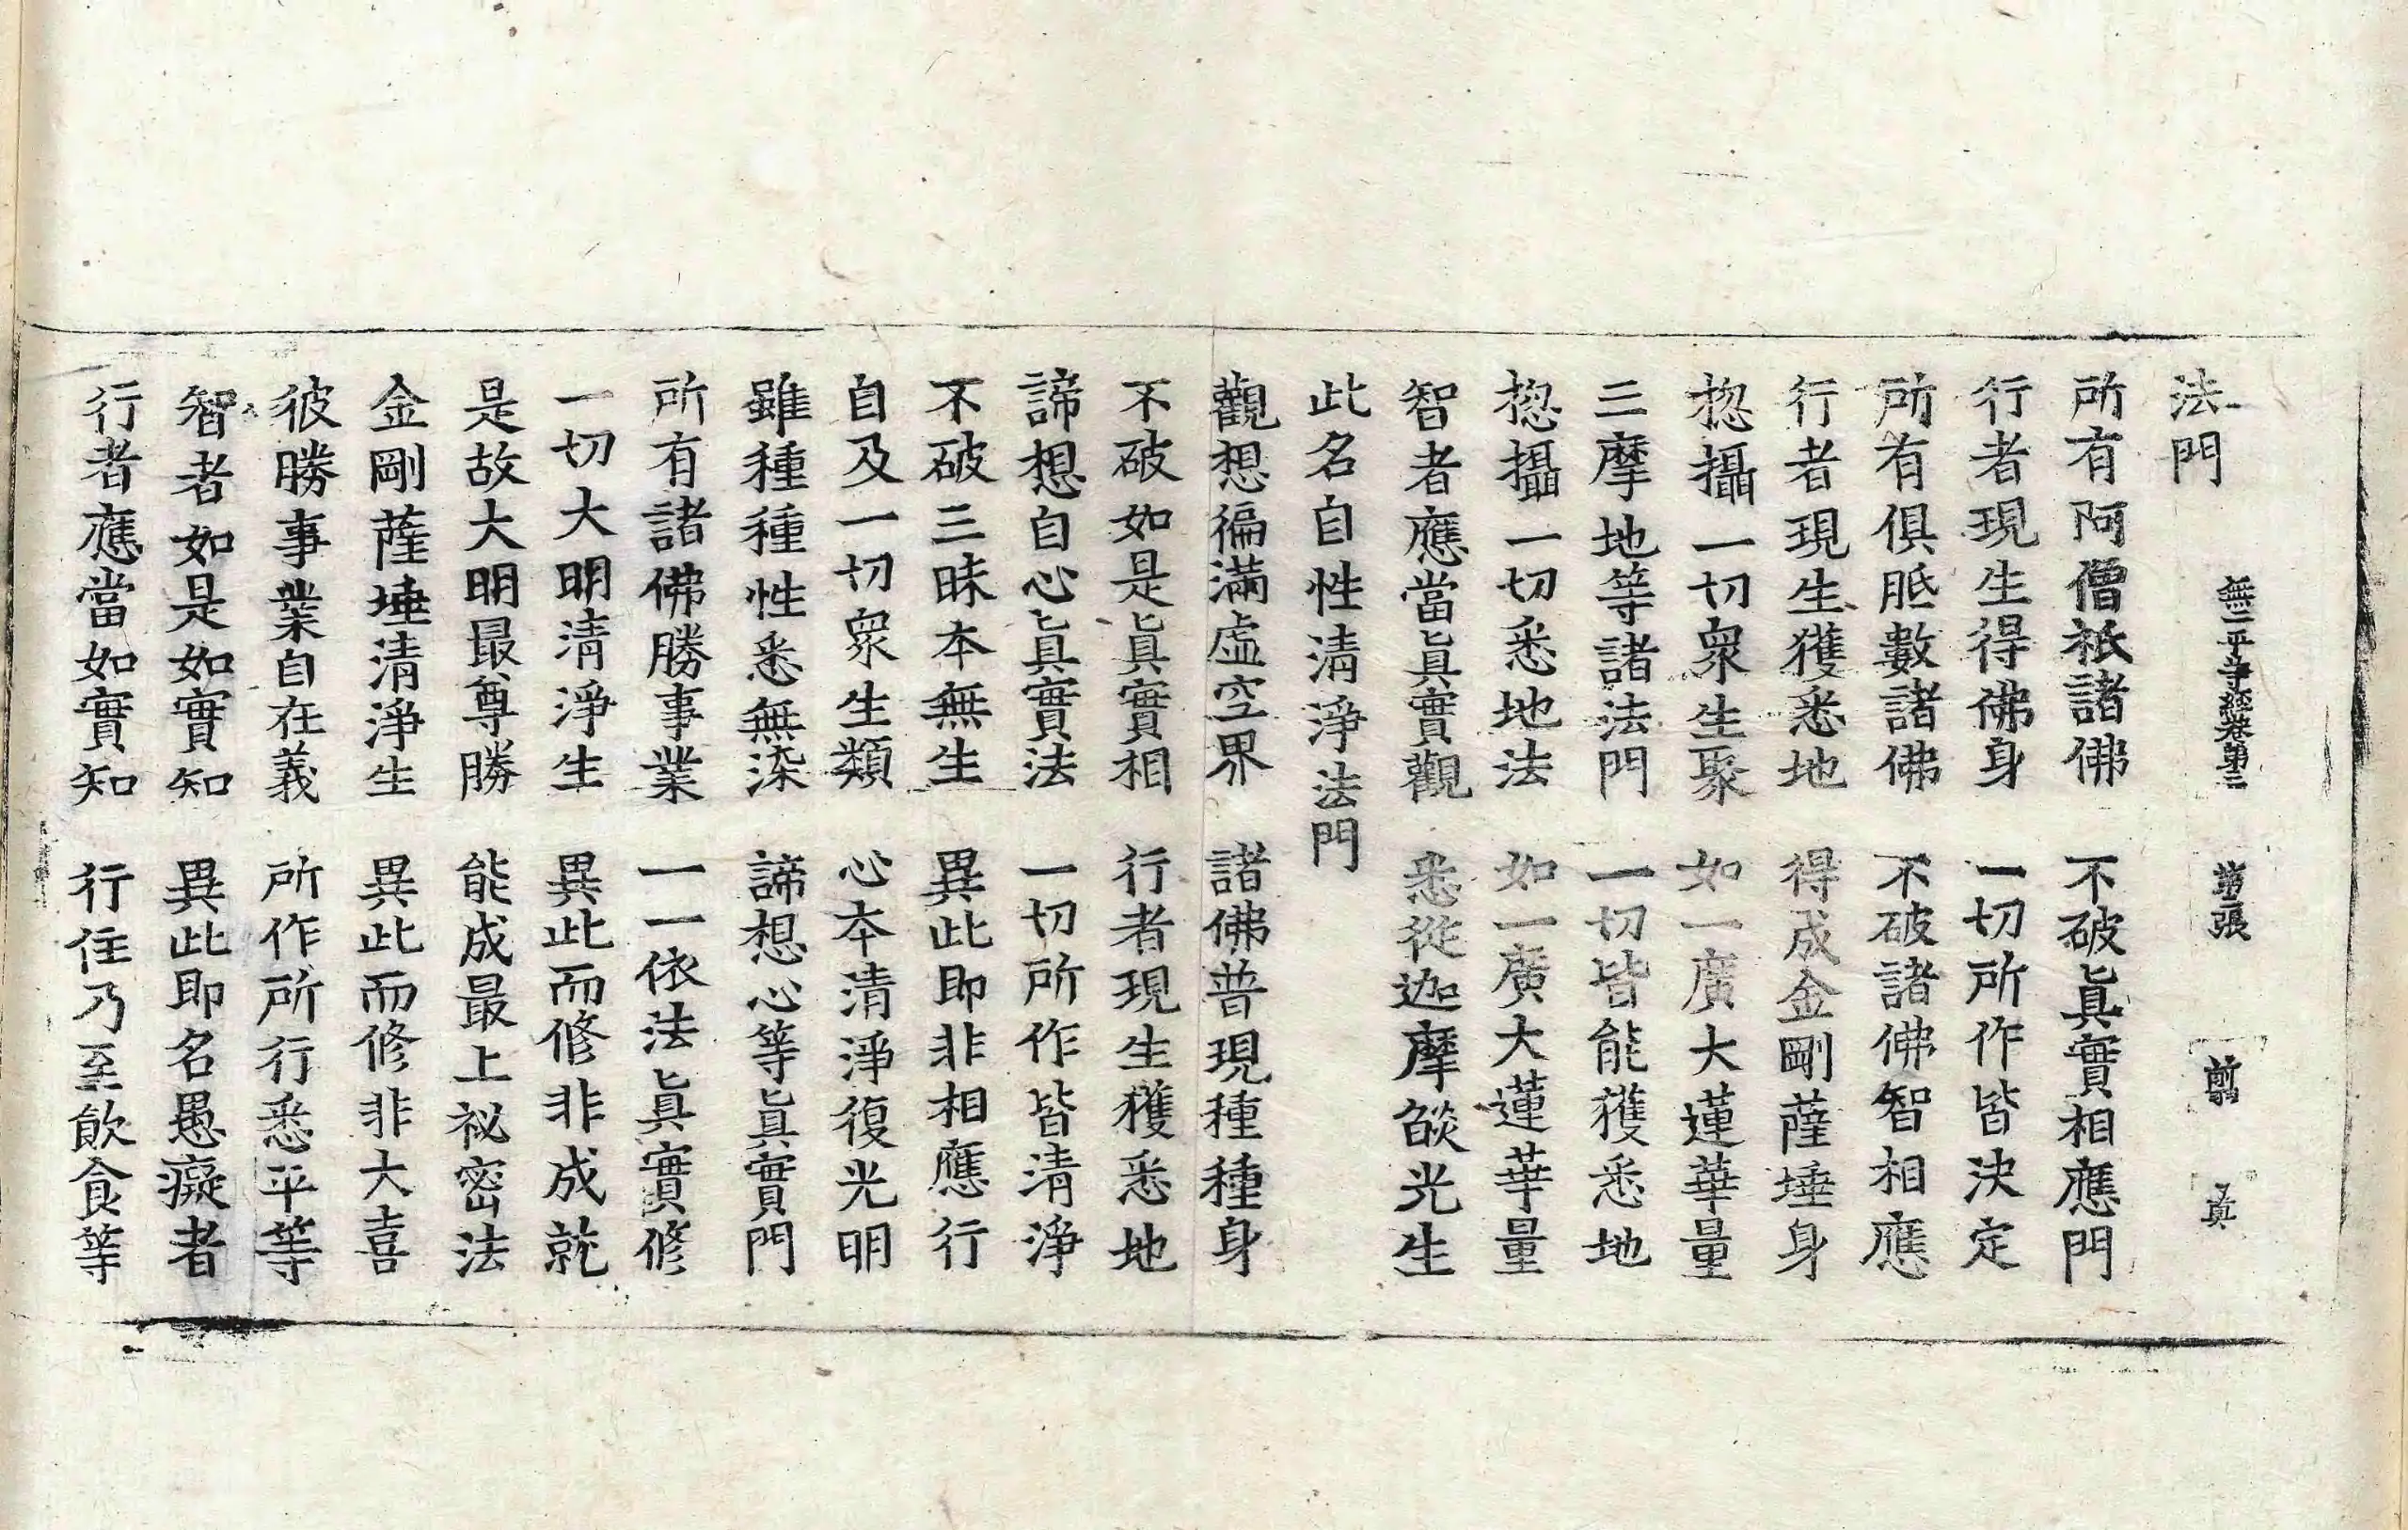 法門
無二平等經卷第三 張 前 眞
所有阿僧祇諸佛 不破眞實相應門
行者現生得佛身 一切所作皆決定
所有俱胝數諸佛 不破諸佛智相應
行者現生獲悉地 得成金剛薩埵身
揔攝一切衆生聚 如一廣大蓮華量
三摩地等諸法門 一切皆能獲悉地
揔攝一切悉地法 如一廣大蓮華量
智者應當眞實觀 悉從迦摩燄光生
此名自性淸淨法門
觀想徧滿虛空界 諸佛普現種種身
不破如是眞實相 行者現生獲悉地
諦想自心眞實法 一切所作皆淸淨
不破三昧本無生 異此即非相應行
自及一切衆生類 心本淸淨復光明
雖種種性悉無染 諦想心等眞實門
所有諸佛勝事業 一一依法眞實修
一切大明淸淨生 異此而修非成就
是故大明最尊勝 能成最上祕密法
金剛薩埵淸淨生 異此而修非大喜
彼勝事業自在義 所作所行悉平等
智者如是如實知 異此即名愚癡者
行者應當如實知 行住乃至飮食等